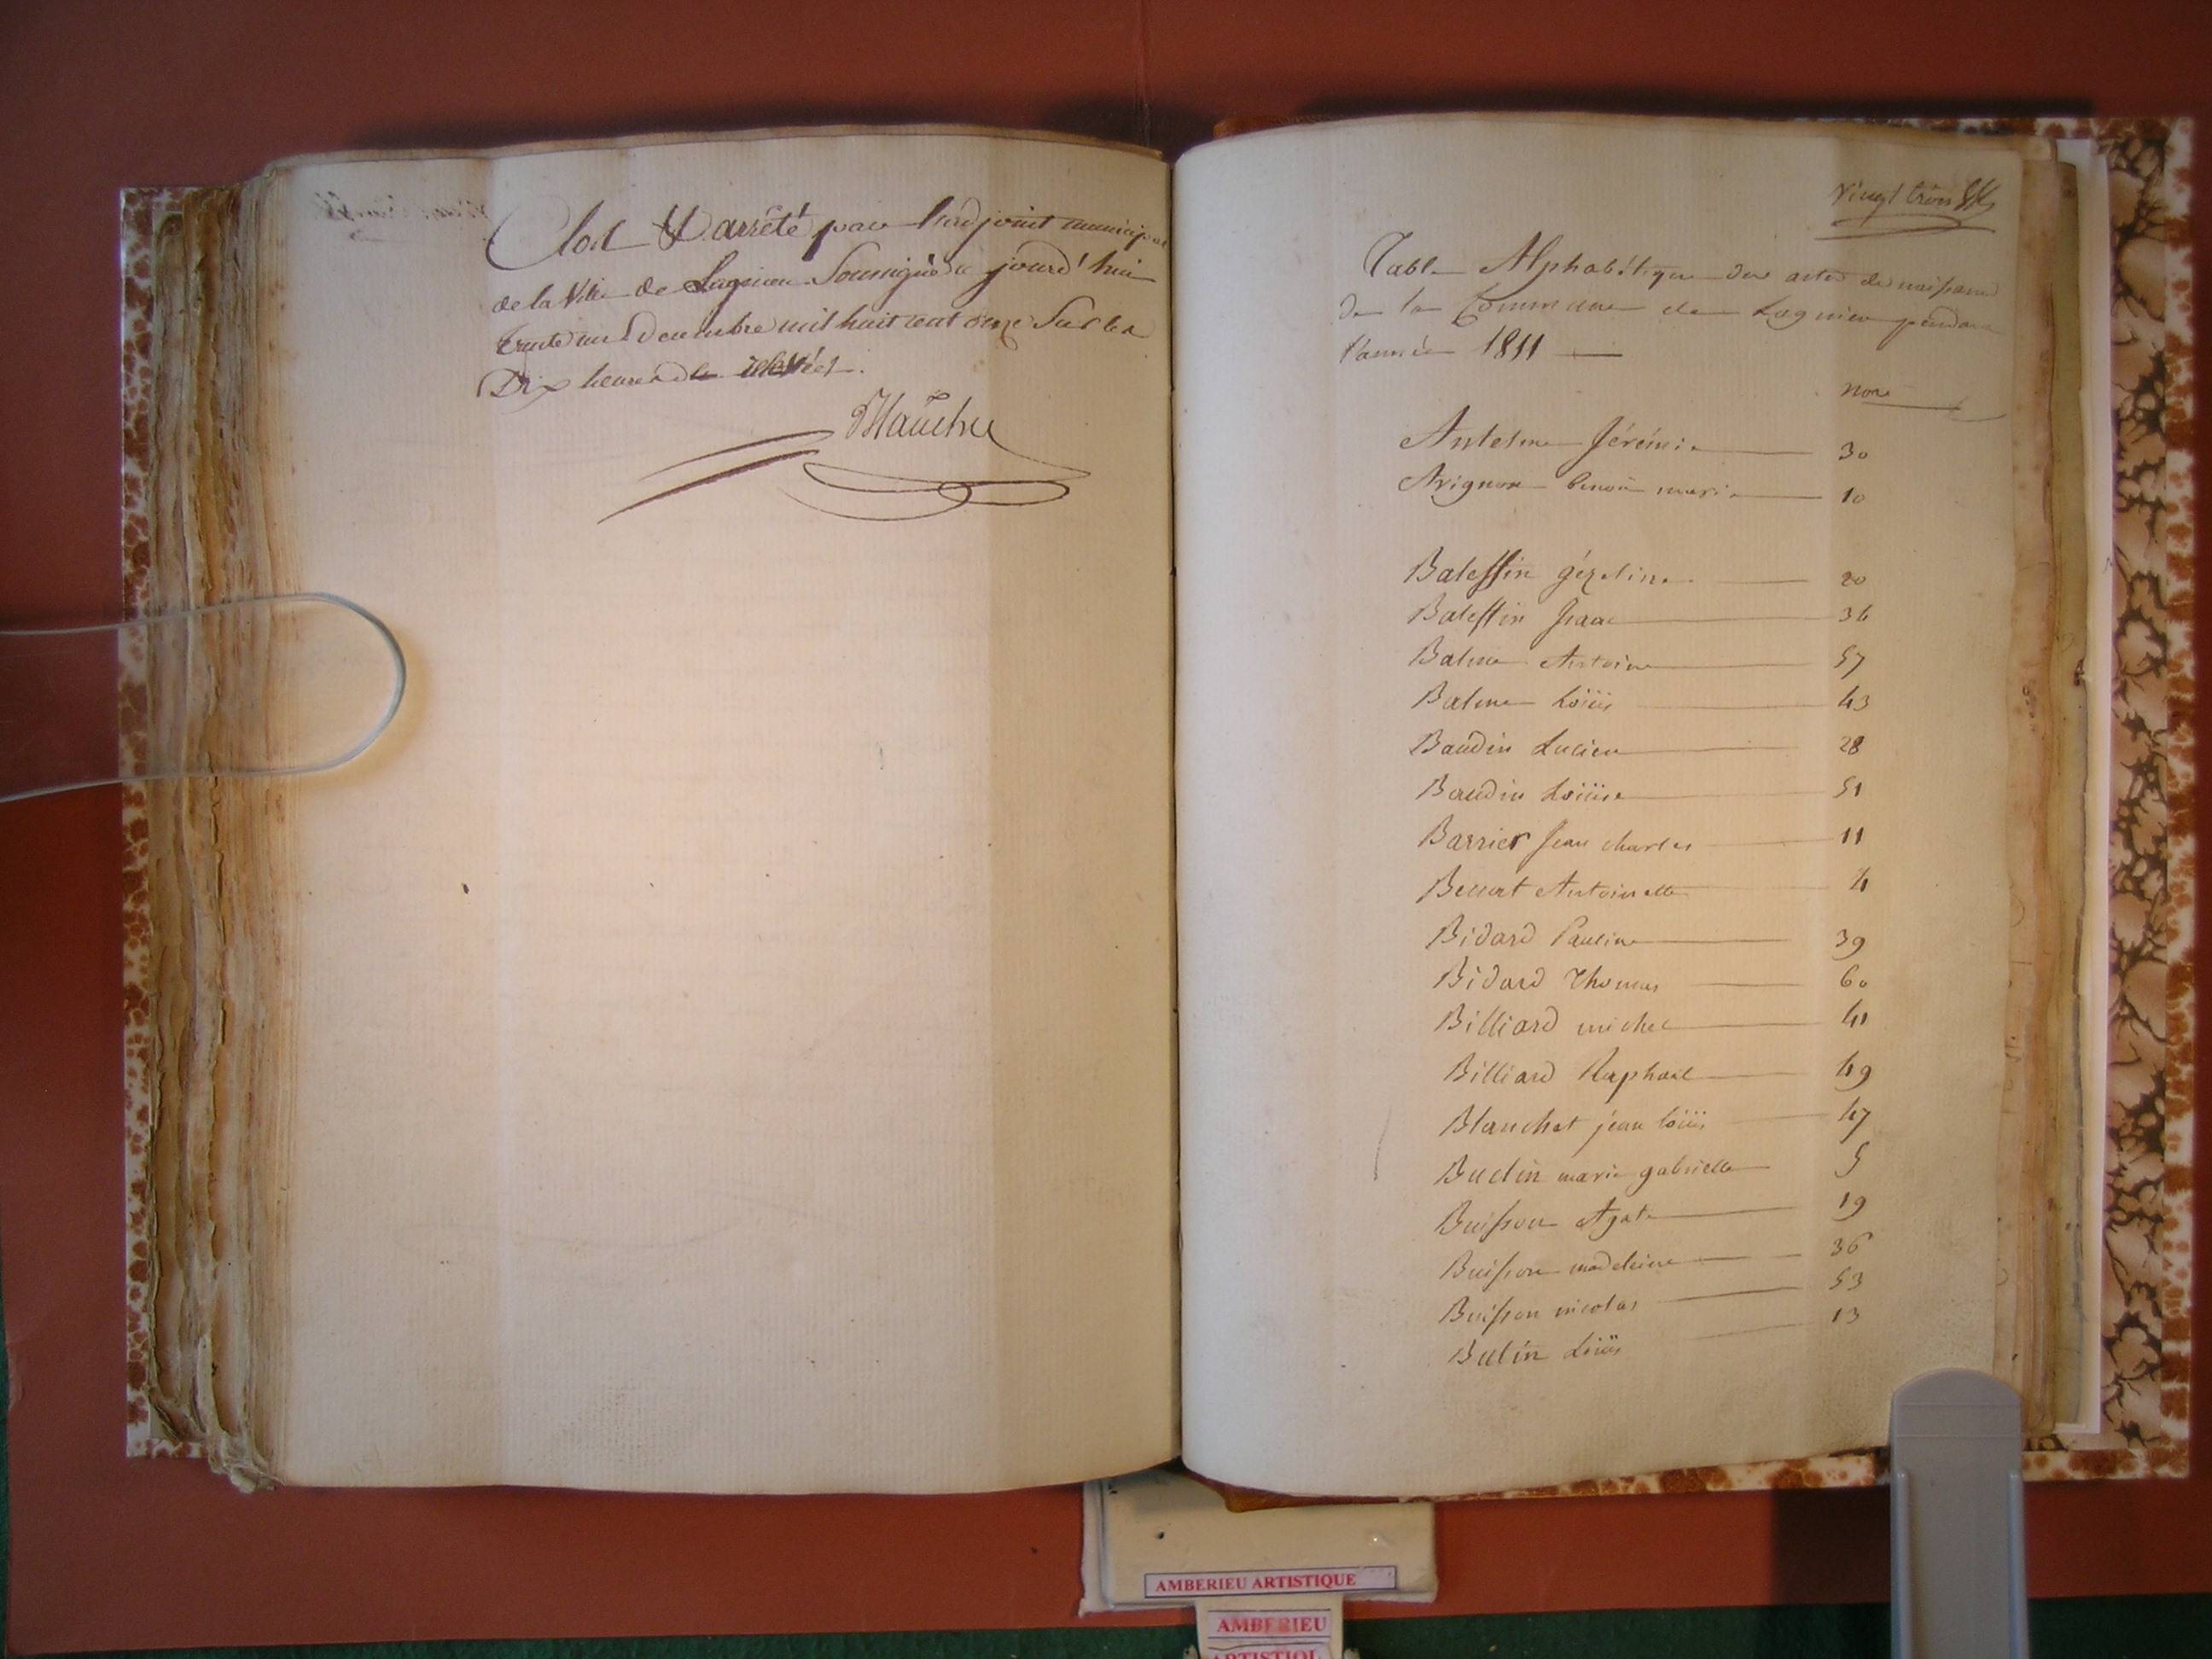 Clos & arrêté par l'adjoint municipal
de la Ville de Lagnieu Soussigné ce jourd'hui
trente un Decembre mil huit cent onze Sur les
Dix heures de relevées.
Vingt trois
Table Alphabétique des actes de naissance
de la Commune de Lagnieu pendant
l'année 1811
Nos
Antelme Jérémie 30
Avignon benoit marie 10
Balessin gézeline 20
Balestin Isaac 34
Balme Antoine 57
Balme Loüis 43
Baudin Lucien 28
Baudin Loüise 51
Barrier Jean charles 11
Antoinette 4
Bidard Pauline 39
Bidard Thomas 60
Billiard michel 41
Billiard Raphael 49
Blanchet jean loüis 47
Budin marie gabrielle 5
Buisson Agate 19
Buisson madeleine 36
Buisson nicolas 53
Butin Loüis 13
AMBERIEU ARTISTIQUE
AMBERIEU